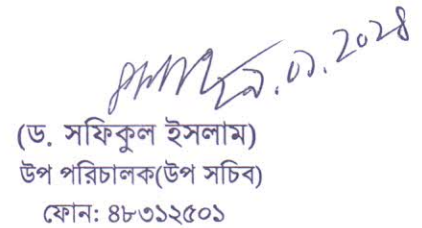 ২৯.০১.২০২৪
(ড. সফিকুল ইসলাম)
উপ পরিচালক(উপ সচিব)
ফোন: ৪৮৩১২৫০১